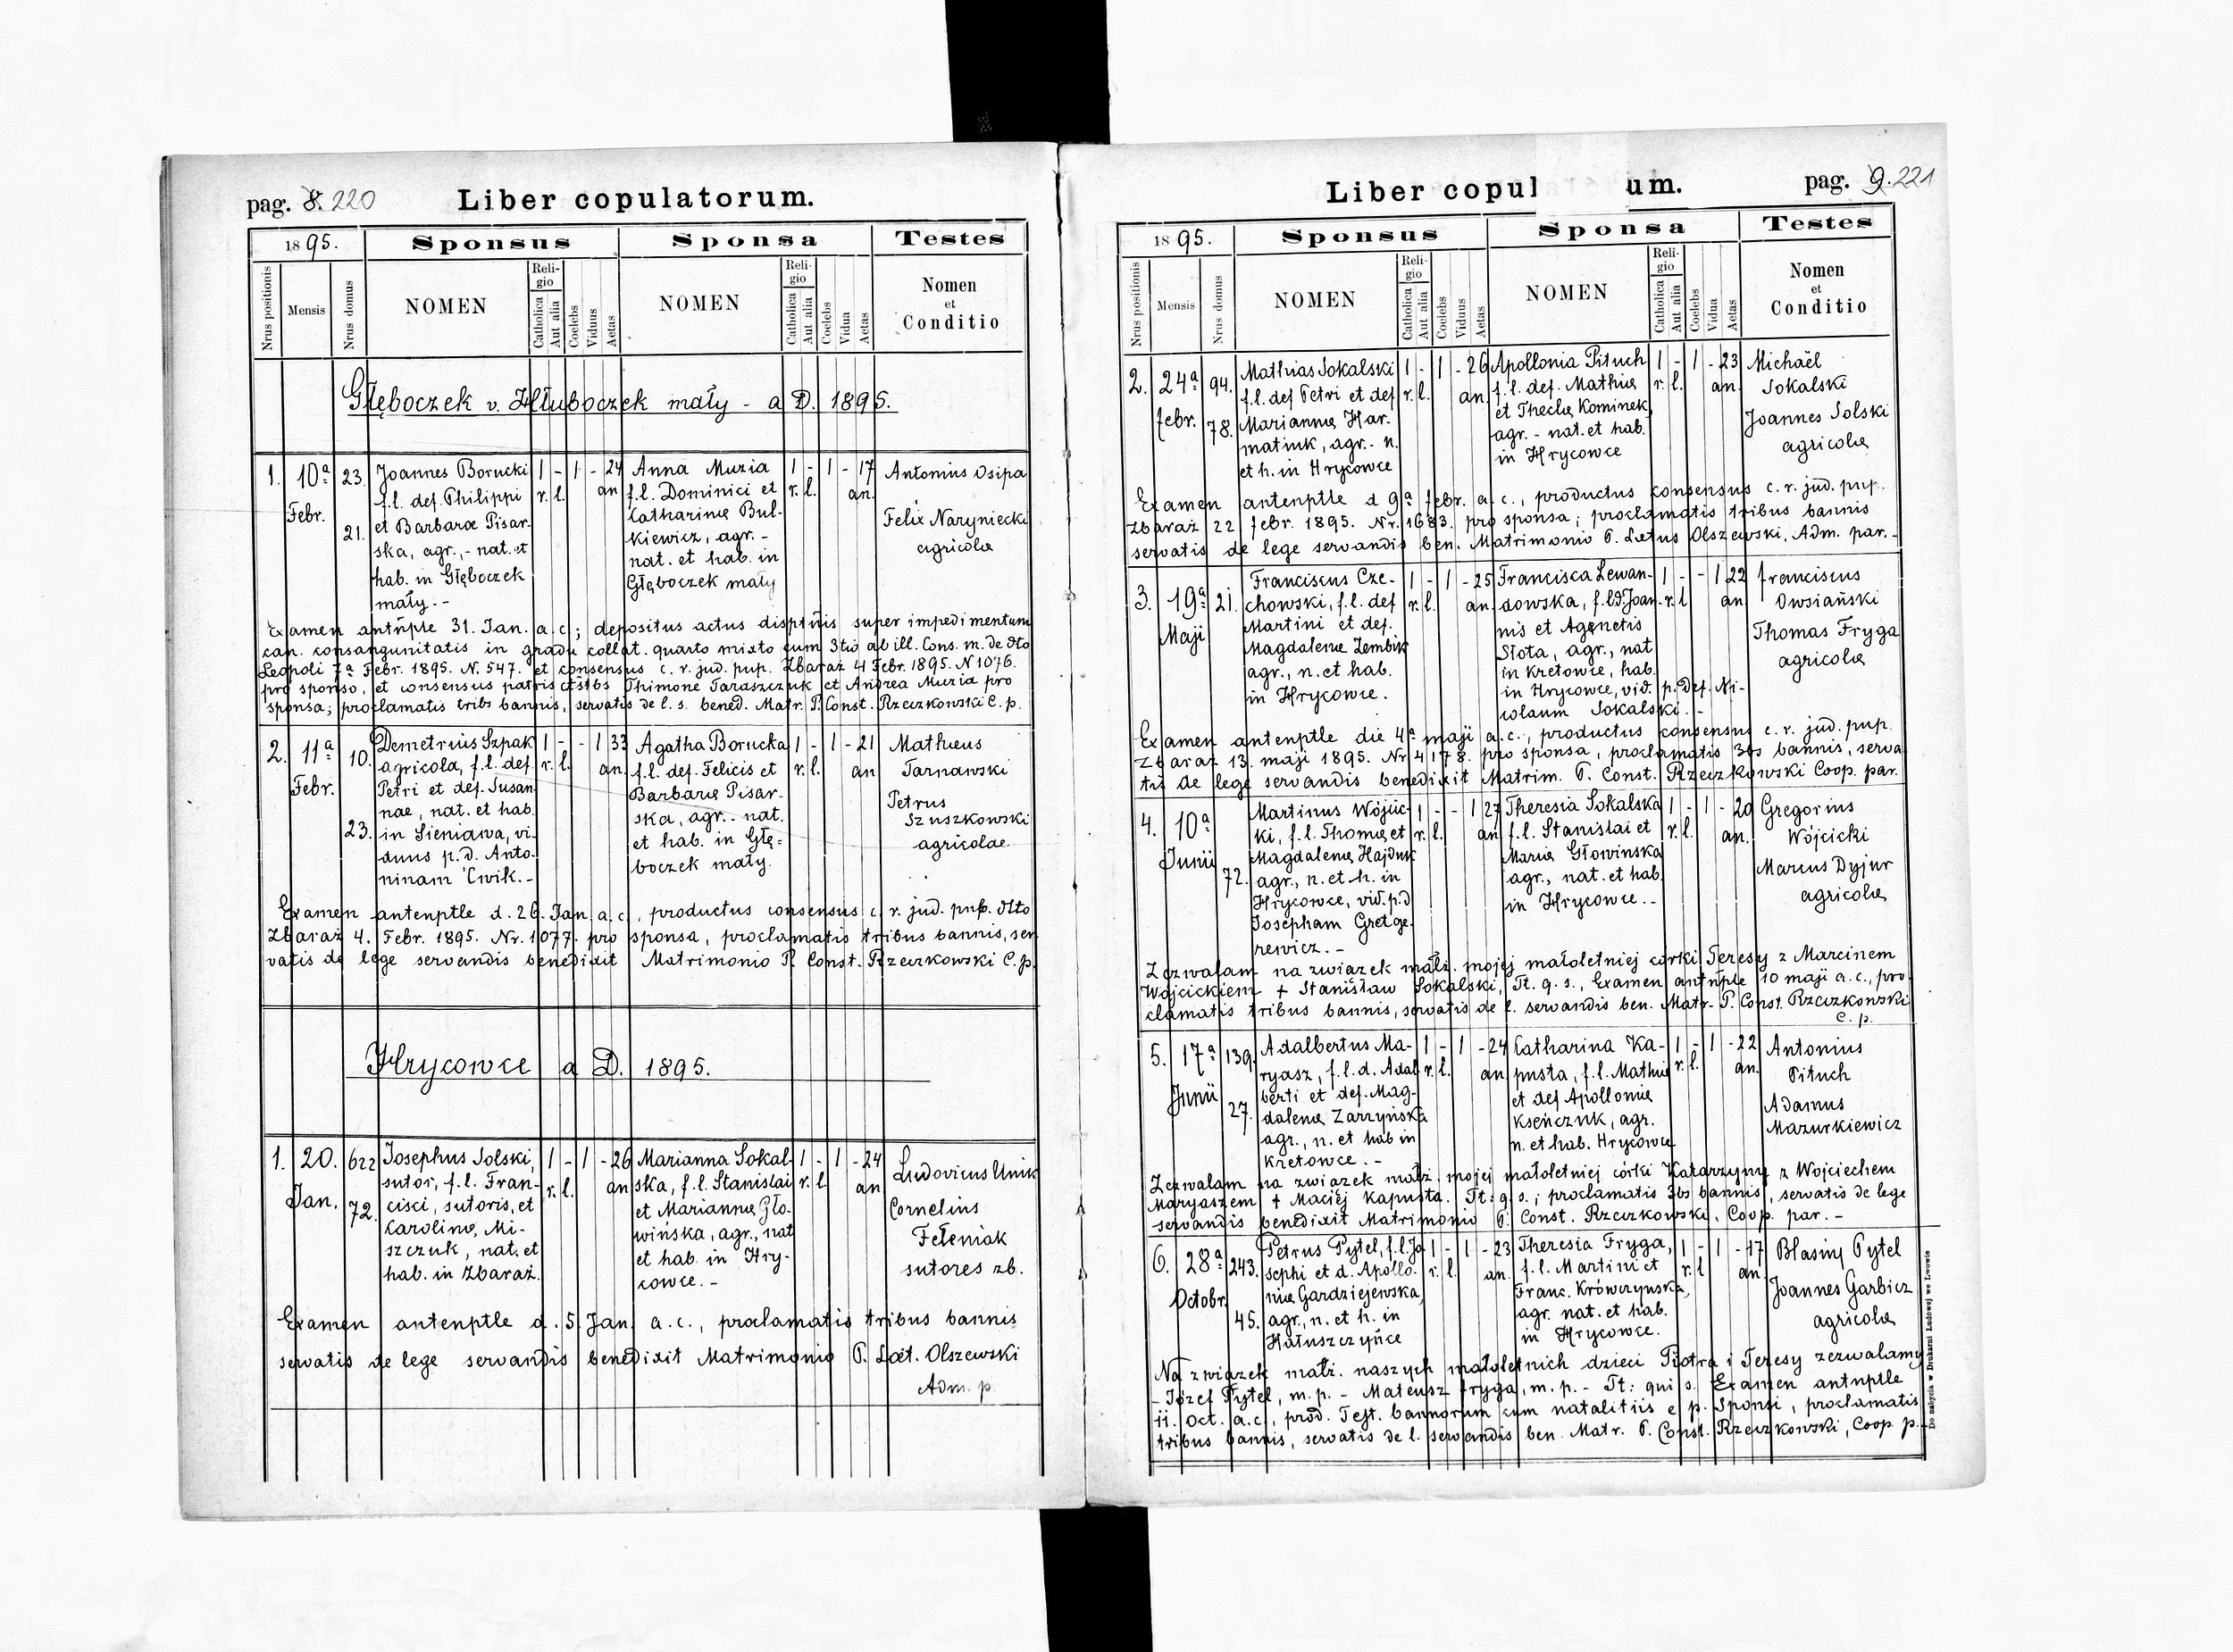 pag. 8. 220 Liber copulatorum.
1895. Sponsus Sponsa Testes
Nrus positionis Mensis Nrus domus NOMEN Religio Catholica Aut alia Coelebs Viduus Aetas NOMEN Religio Catholica Aut alia Coelebs Vidua Aetas Nomen et Conditio
Głęboczek v. Hłuboczek mały - a D. 1895.
1. 10ª 23. Joannes Borucki 1 - 1 - 24 Anna Muzia 1 - 1 - 17 Antonius Osipa
f.l. def. Philippi r.l. an f.l. Dominici et r.l. an.
Febr. et Barbarae Pisar- Catharinæ Bul- Felix Naryniecki
21. ska, agr., - nat. et kiewicz, agr. - agricolæ
hab. in Głęboczek nat. et hab. in
mały. - Głęboczek mały
Examen antñple 31. Jan. a. c.; depositus actus disptñis super impedimentum
can. consangunitatis in gradu collat. quarto mixto cum 3tio ab ill. Cons. m. de dto
Leopoli 7ª Febr. 1895. N. 547. et consensus c. r. jud. pup. Zbaraż 4 Febr. 1895. N 1076.
pro sponso, et consensus patris Thimone Taraszczuk et Andrea Muzia pro
sponsa; proclamatis tribs bannis, servatis de l. s. bened. Matr. P. Const. Rzeczkowski C. p.
2. 11ª 10. Demetrius Szpak 1 - - 1 33 Agatha Borucka 1 - 1 - 21 Matheus
agricola, f.l. def. r.l. an. f.l. def. Felicis et r.l. an Tarnawski
Febr. Petri et def. Susan- Barbaræ Pisar- Petrus
nae, nat. et hab. ska, agr. - nat. Szuszkowski
23. in Sieniawa, vi- et hab. in Głę- agricolae.
duus p. d. Anto- boczek mały.
ninam Ćwik. -
Examen antenptle d. 26. Jan. a. c., productus consensus c. r. jud. pup. dtto
Zbaraż 4. Febr. 1895. Nr. 1077. pro sponsa, proclamatis tribus bannis, ser
vatis de lege servandis benedixit Matrimonio P. Const. Rzeczkowski C. p.
Hrycowce a D. 1895.
1. 20. 622 Josephus Solski, 1 - 1 - 26 Marianna Sokal- 1 - 1 - 24 Ludovicus Unik
sutor, f.l. Fran- r.l. an ska, f.l. Stanislai r.l. an
Jan. 72. cisci, sutoris, et et Mariannæ Gło- Cornelius
Carolinæ, Mi- wińska, agr., nat Feleniak
szczuk, nat. et et hab. in Hry- sutores zb.
hab. in Zbaraż. cowce. -
Examen antenptle d. 5. Jan. a. c., proclamatis tribus bannis
servatis de lege servandis benedixit Matrimonio P. Læt. Olszewski
Adm. p.
Liber copul um. pag. 9. 221
1895. Sponsus Sponsa Testes
Nrus positionis Mensis Nrus domus NOMEN Religio Catholica Aut alia Coelebs Viduus Aetas NOMEN Religio Catholica Aut alia Coelebs Vidua Aetas Nomen et Conditio
2. 24ª 94. Mathias Sokalski 1 - 1 - 26 Apollonia Pituch 1 - 1 - 23 Michaël
f.l. def Petri et def r.l. an. f.l. def. Mathiæ r.l. an. Sokalski
febr. 78. Mariannæ Har- et Theclæ Kominek, Joannes Solski
matiuk, agr. - n. agr. - nat. et hab. agricolæ
et h. in Hrycowce in Hrycowce
Examen antenptle d 9ª febr. a. c., productus consensus c. r. jud. pup.
Zbaraż 22 febr. 1895. Nr. 1683. pro sponsa; proclamatis tribus bannis
servatis de lege servandis ben. Matrimonio P. Lætus Olszewski, Adm. par. -
3. 19ª 21. Franciscus Cze- 1 - 1 - 25 Francisca Lewan- 1 - - 1 22 Franciscus
chowski, f.l. def r.l. an. dowska, f.l.d. Joan- r.l an Owsiański
Maji Martini et def. nis et Agnetis Thomas Fryga
Magdalenæ Zembik Słota, agr., nat agricolæ
agr., n. et hab. in Kretowce, hab.
in Hrycowce. in Hrycowce, vid. p. def. Ni-
colaum Sokalski. -
Examen antenptle die 4ª maji a. c., productus consensus c. r. jud. pup.
Zbaraż 13. maji 1895. Nr 4178. pro sponsa, proclamatis 3bs bannis, serva
tis de lege servandis benedixit Matrim. P. Const. Rzeczkowski Coop. par.
4. 10ª Martinus Wójcic- 1 - - 1 27 Theresia Sokalska 1 - 1 - 20 Gregorius
ki, f.l. Thomæ et r.l. an f.l. Stanislai et r.l. an. Wójcicki
Junii 72. Magdalenæ Hajduk Mariæ Głowinska Marcus Dyjur
agr., n. et h. in agr., nat. et hab. agricolæ
Hrycowce, vid. p.d in Hrycowce. -
Josepham Gretge-
rewicz. -
Zezwalam na związek małż. mojej małoletniej córki Teresy z Marcinem
Wójcickiem + Stanisław Sokalski, Tt. q. s., Examen antñple 10 maji a. c., pro-
clamatis tribus bannis, servatis de l. servandis ben. Matr. P. Const. Rzeczkowski
C. p.
5. 17ª 139. Adalbertus Ma- 1 - 1 - 24 Catharina Ka- 1 - 1 - 22 Antonius
ryasz, f.l. d. Adal r.l. an pusta, f.l. Mathiæ r.l. an. Pituch
Junii 27. berti et def. Mag- et def Apolloniæ Adamus
dalenæ Zarzyńska Kseńczuk, agr. Mazurkiewicz
agr., n. et hab in n. et hab. Hrycowce
Kretowce. -
Zezwalam na związek małż. mojej małoletniej córki Katarzyny z Wojciechem
Maryaszem + Maciej Kapusta. Tt: q. s.; proclamatis 3bs bannis, servatis de lege
servandis benedixit Matrimonio P. Const. Rzeczkowski, Coop. par. -
6. 28ª 243. Petrus Pytel, f.l. Jo 1 - 1 - 23 Theresia Fryga, 1 - 1 - 17 Blasius Pytel
sephi et d. Apollo- r.l. an. f.l. Martini et r.l an
Octobr. niæ Gardziejewska, Franc. Krówczynska, Joannes Garbicz
45. agr., n. et h. in agr. nat. et hab. agricolæ
Hałuszczyńce in Hrycowce.
Na związek małż. naszych małoletnich dzieci Piotra i Teresy zezwalamy
- Józef Pytel, m. p. - Mateusz Fryga, m. p. - Tt: qui s. Examen antnptle
11. Oct. a. c., prod. Test. bannorum cum natalitiis e p. Sponsi, proclamatis
tribus bannis, servatis de l. servandis ben. Matr. P. Const. Rzeczkowski, Coop. p. -
Do nabycia w Drukarni Ludowej we Lwowie